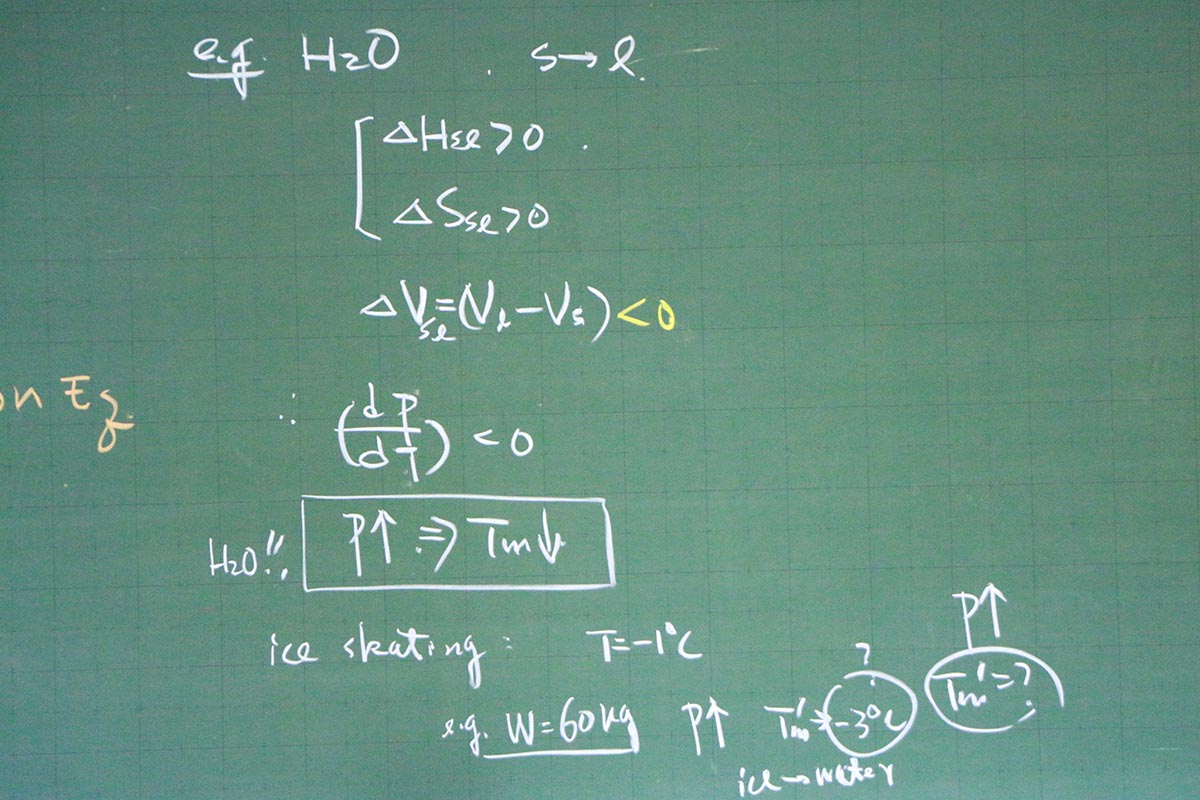 e.g. H2O . s→l
ΔHsl>0 .
ΔSsl>0
ΔVsl=(Vl-Vs)<0
on Eq.
∴ (dP/dT) < 0
H2O!! P↑ ⇒ Tm↓
ice skating: T=-1°C
P↑
Tm'=?
?
e.g. W=60kg P↑ Tm'→-3°C
ice→water